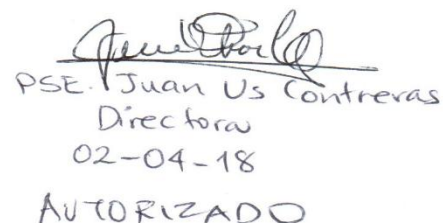 PSE. Juan Us Contreras
Directora
02-04-18
AUTORIZADO